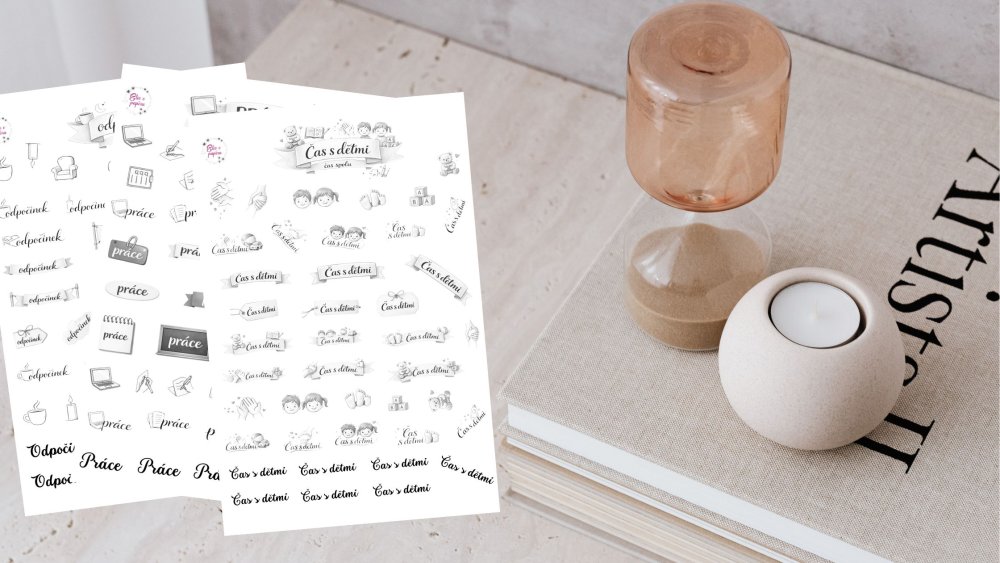 odpočinek
odpočinek
odpočinek
odpočinek
odpočinek
odpočinek
odpočinek
odpočinek
Odpoči
Odpoi
Práce
práce
práce
práce
práce
práce
práce
práce
Práce
Práce
Čas s dětmi
čas spolu
Čas s dětmi
Čas s dětmi
Čas s dětmi
Čas s dětmi
Čas s dětmi
Čas s dětmi
Čas s dětmi
Čas s dětmi
Čas s dětmi
Čas s dětmi
Čas s dětmi
Čas s dětmi
Čas s dětmi
Čas s dětmi
Čas s dětmi
Čas s dětmi
Čas s dětmi
Čas s dětmi
Čas s dětmi
Čas s dětmi
Čas s dětmi Čas s dětmi Čas s dětmi Čas s dětmi
Čas s dětmi Čas s dětmi Čas s dětmi
Artiste II